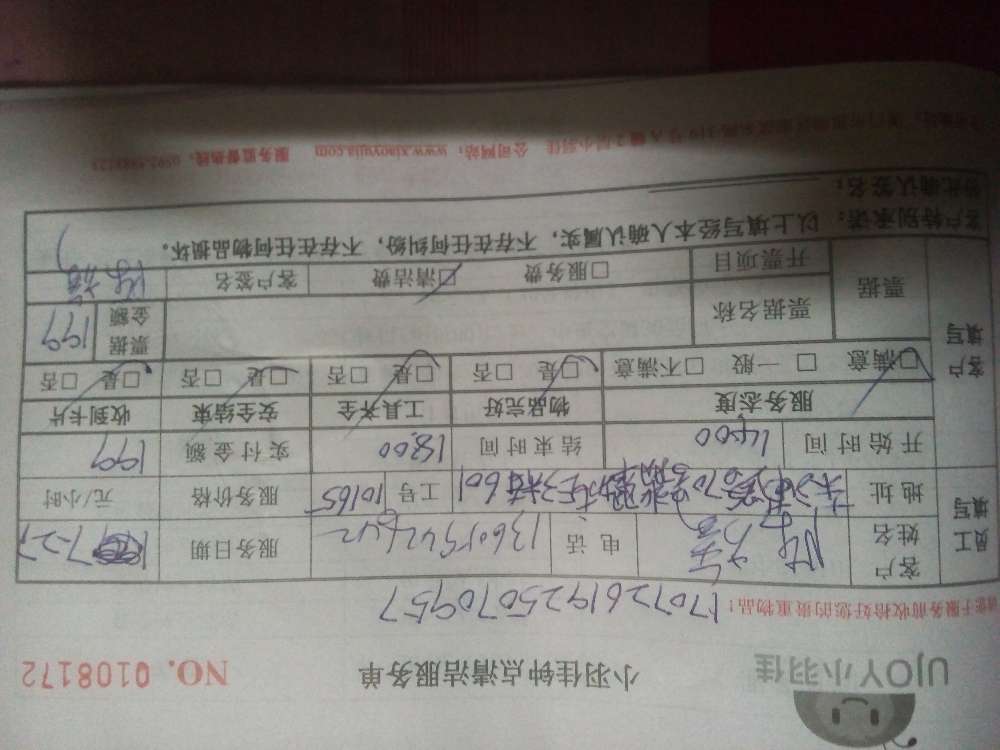 UJOY小羽佳
小羽佳钟点清洁服务单
NO. 0108172
请您于服务前收拾好您的贵重物品!
1707261925070957
员工填写
客户姓名
电话
服务日期 7-27
地址
工号 10165
服务价格 元/小时
开始时间 14:00
结束时间 18:00
实付金额 199
客户填写
服务态度 物品完好 工具齐全 安全结束 收到卡片
□满意 □一般 □不满意 □是 □否 □是 □否 □是 □否 □是 □否
票据
票据名称
票据金额 199
开票项目 □服务费 □清洁费 客户签名
客户特别承诺: 以上填写经本人确认属实,不存在任何纠纷,不存在任何物品损坏。
确认签名:
公司网站: www.xiaoyujia.com 服务监督热线: